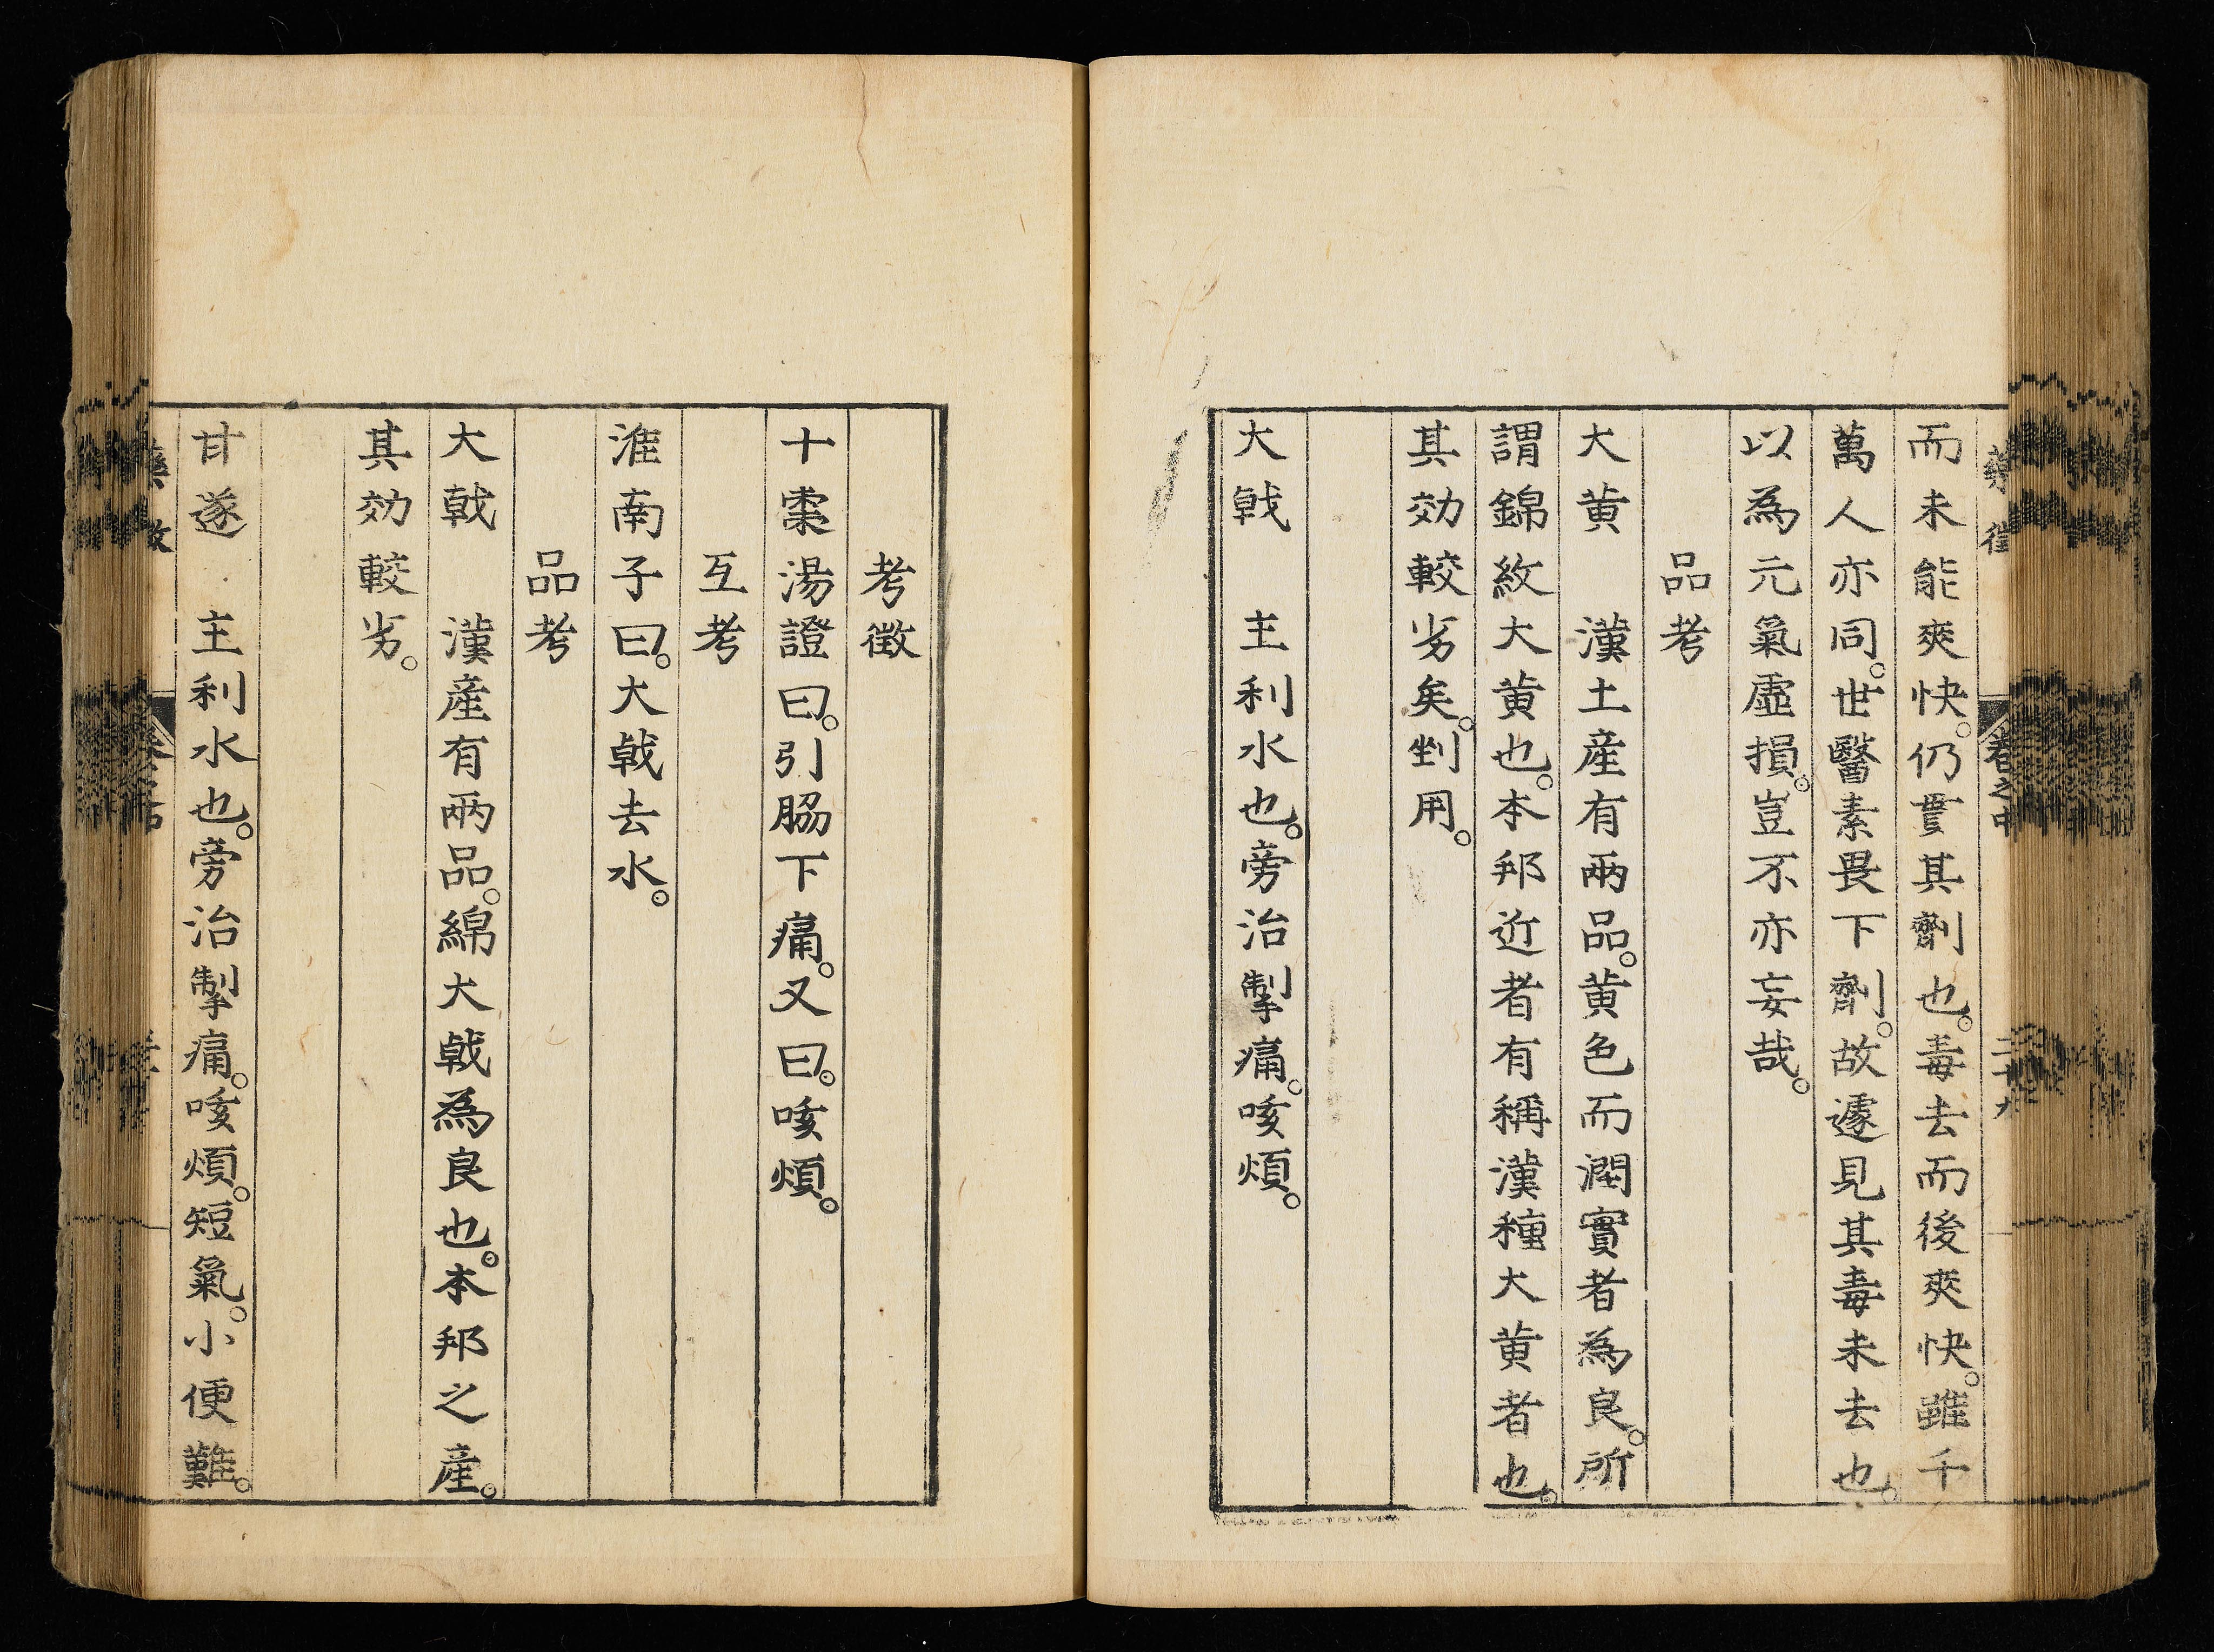 藥徵
卷之中
二十九
而未能爽快。仍貫其劑也。毒去而後爽快。雖千
萬人亦同。世醫素畏下劑。故遽見其毒未去也。
以為元氣虛損。豈不亦妄哉。
品考
大黄　漢土産有兩品。黄色而潤實者為良。所
謂錦紋大黄也。本邦近者有稱漢種大黄者也。
其効較劣矣。剉用。
大戟　主利水也。旁治掣痛。咳煩。
考徵
十棗湯證曰。引脇下痛。又曰。咳煩。
互考
淮南子曰。大戟去水。
品考
大戟　漢産有兩品。綿大戟為良也。本邦之産。
其効較劣。
甘遂　主利水也。旁治掣痛。咳煩。短氣。小便難。